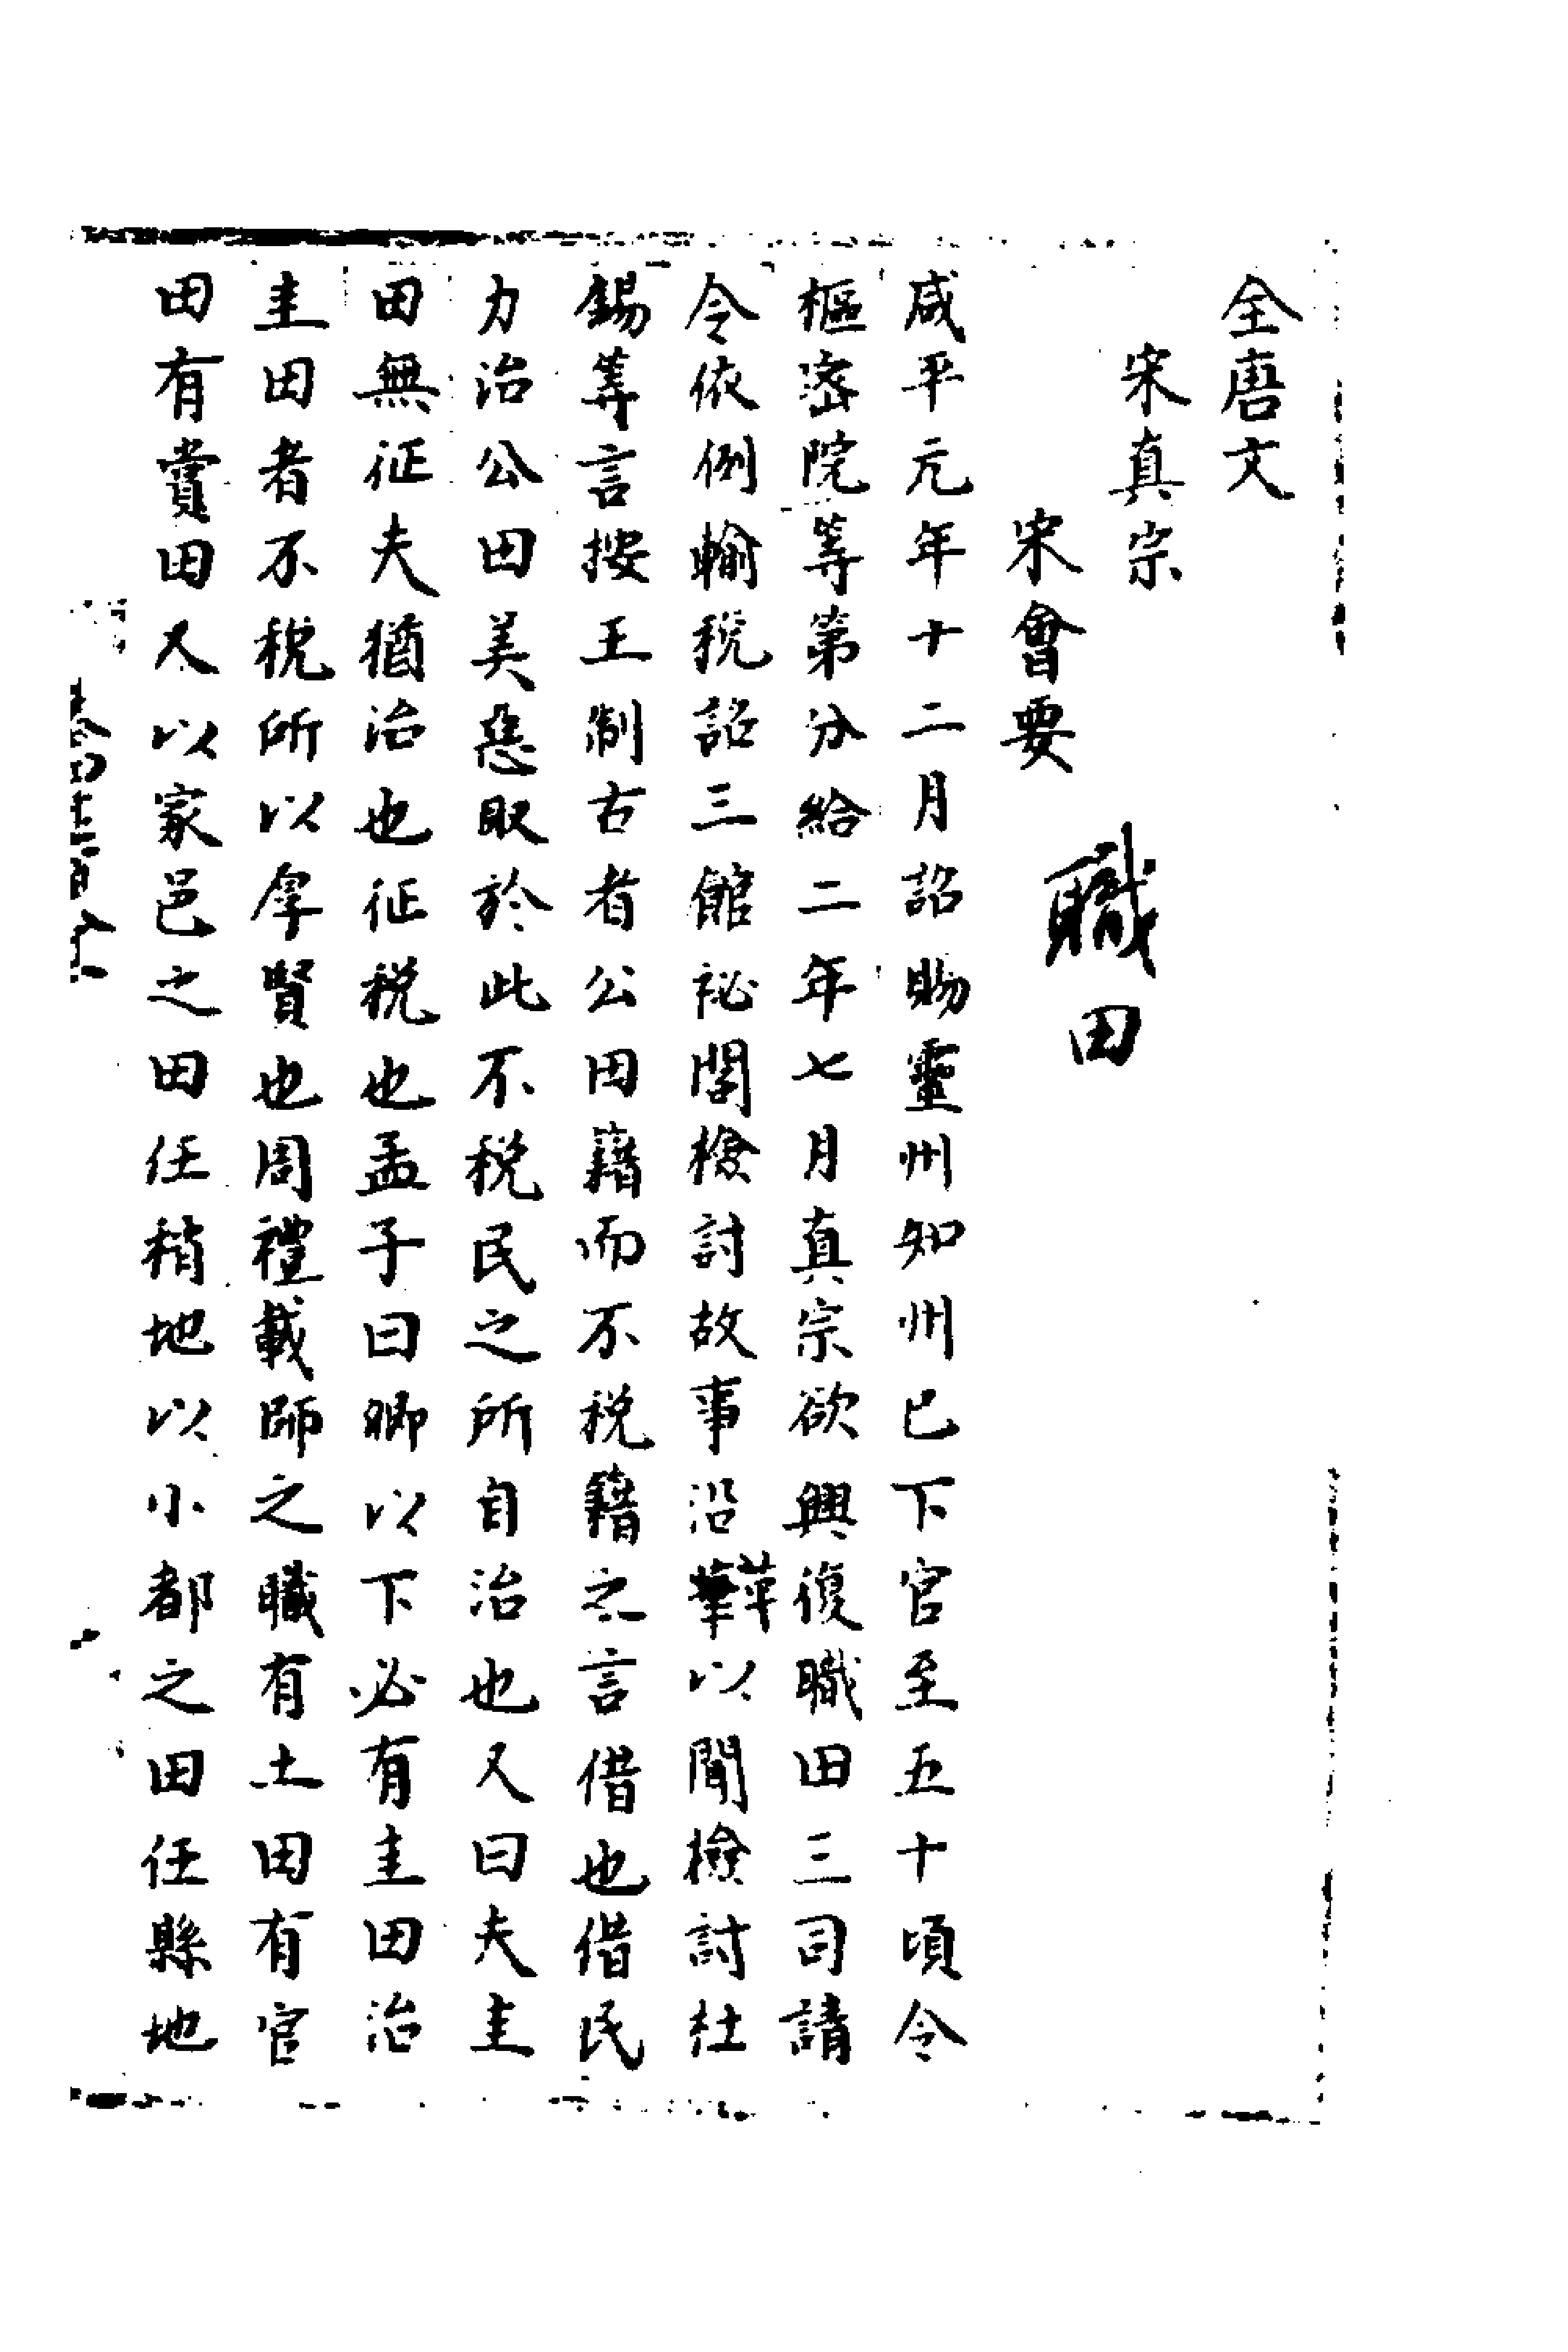 全唐文
宋真宗
宋會要
職田
咸平元年十二月詔賜靈州知州已下官至五十頃令
樞密院等第分給二年七月真宗欲興復職田三司請
令依例輸稅詔三館祕閣檢討故事沿革以聞檢討杜
錫等言按王制古者公田籍而不稅籍之言借也借民
力治公田美惡取於此不稅民之所自治也又曰夫圭
田無征夫猶治也征稅也孟子曰卿以下必有圭田治
圭田者不稅所以厚賢也周禮載師之職有士田有官
田有賞田又以家邑之田任稍地以小都之田任縣地